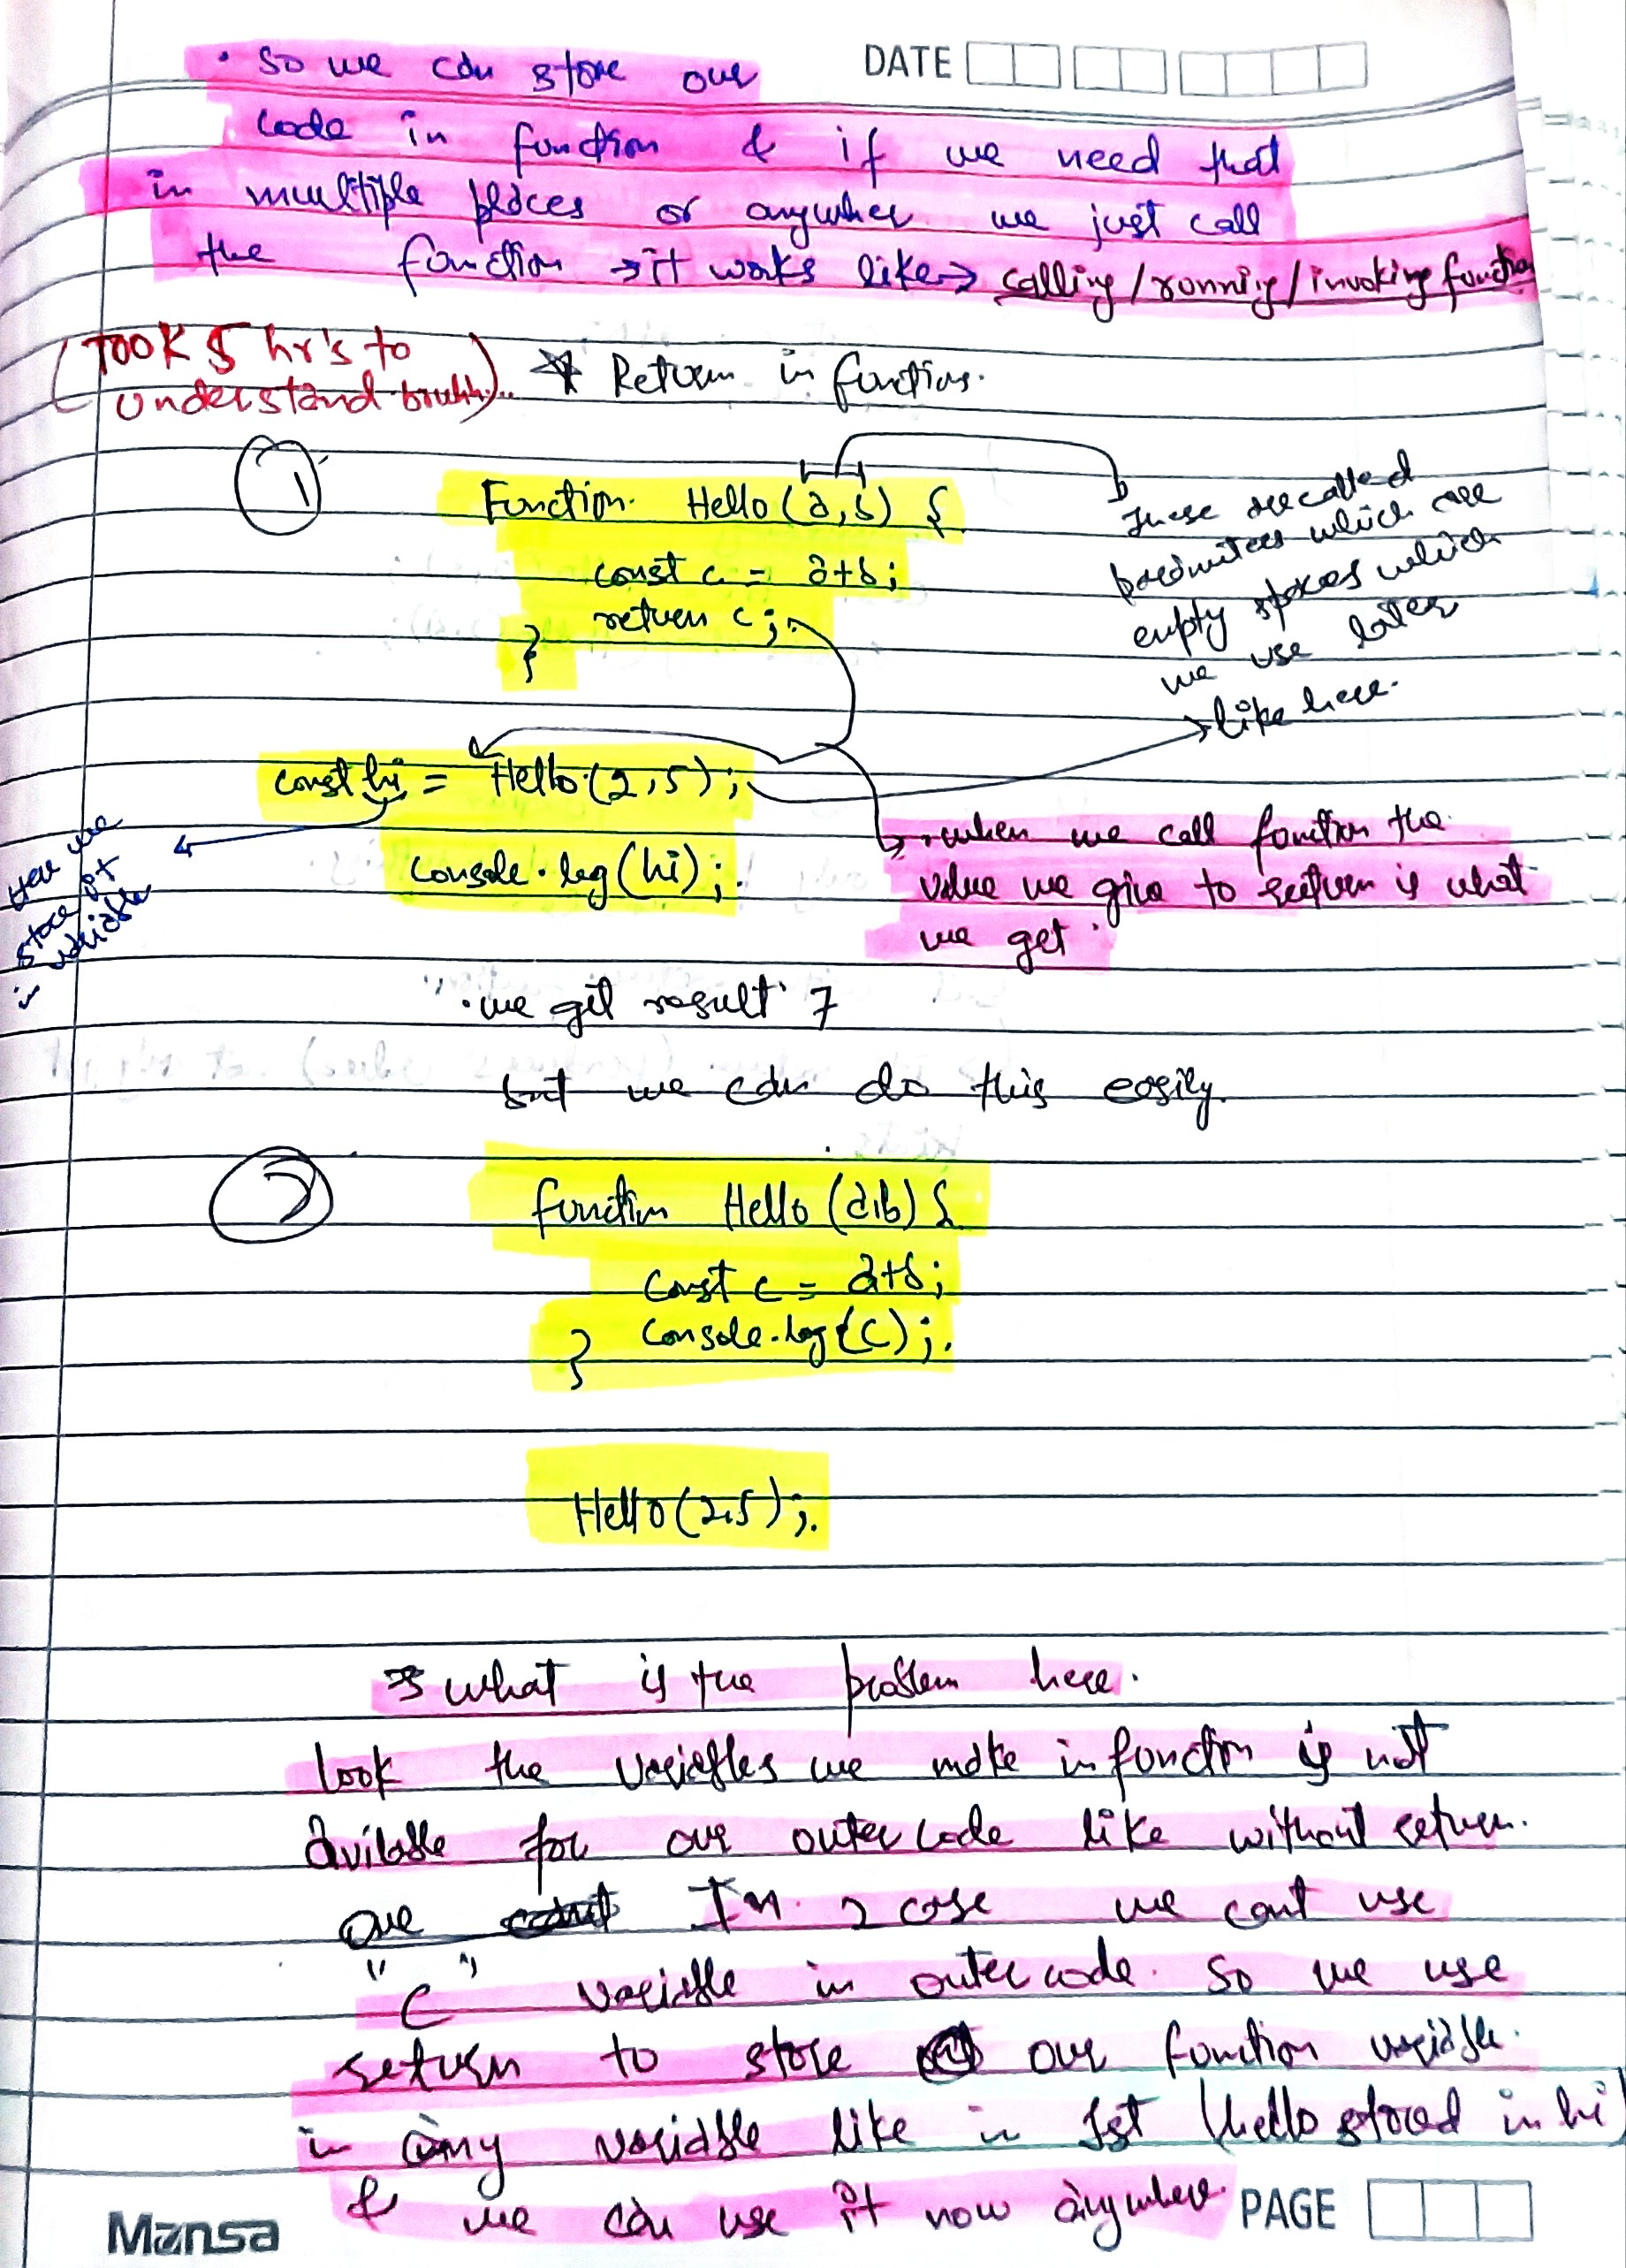 DATE
• So we can store our
code in function & if we need that
in multiple places or anywher we just call
the function → it works like → calling / running / invoking function
(TOOK 5 hr's to
understand bruhh..)
* Return in function.
1
Function Hello (a,b) {
const c = a+b;
return c;
}
These are called
parimiters which are
empty spaces which
we use later
like here.
const hi = Hello (2,5);
console.log (hi);
Here we
store it
in variable
• when we call function the
value we give to return is what
we get.
• we get result 7
but we can do this easily.
2
function Hello (a,b) {
const c = a+b;
console.log (c);
}
Hello (2,5);
→ what is the problem here.
look the variables we make in function is not
avilable for our outer code like without return.
our In 2 case we cant use
"C" variable in outer code. So we use
return to store our function variable
in any variable like in 1st (hello stored in hi)
& we can use it now anywhere.
Mansa
PAGE